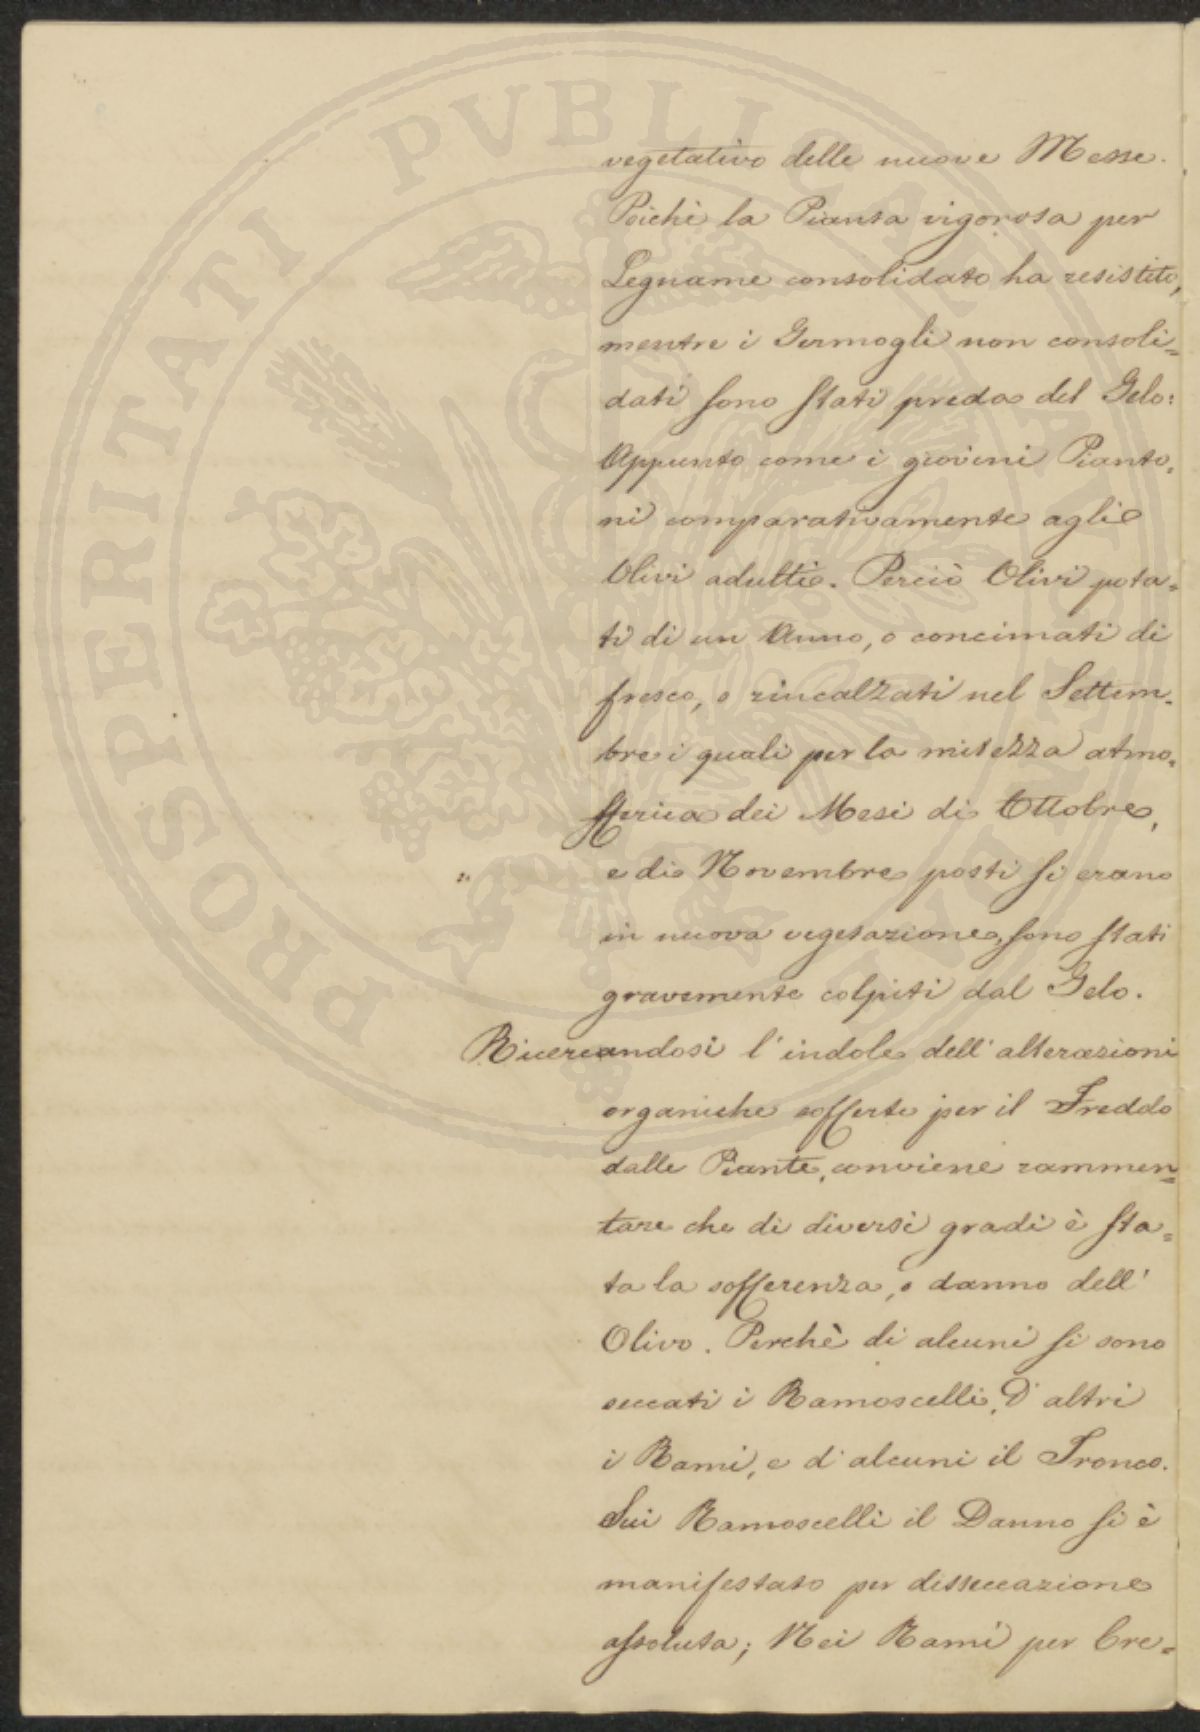 PROSPERITATI PVBLICAE AVGENDAE
vegetativo delle nuove Messe.
Poichè la Pianta vigorosa per
Legname consolidato ha resistito,
mentre i Germogli non consoli=
dati sono stati preda del Gelo:
Appunto come i giovini Pianto=
ni comparativamente agli
Olivi adulti. Perciò Olivi pota=
ti di un Anno, o concimati di
fresco, o rincalzati nel Settem=
bre i quali per la mitezza atmo=
sferica dei Mesi di Ottobre,
e di Novembre posti si erano
in nuova vegetazione, sono stati
gravemente colpiti dal Gelo.
Ricercandosi l'indole dell'alterazioni
organiche sofferte per il Freddo
dalle Piante, conviene rammen=
tare che di diversi gradi è sta=
ta la sofferenza, o danno dell'
Olivo. Perchè di alcuni si sono
seccati i Ramoscelli, D'altri
i Rami, e d'alcuni il Tronco.
Sui Ramoscelli il Danno si è
manifestato per disseccazione
assoluta; Nei Rami per Cre=